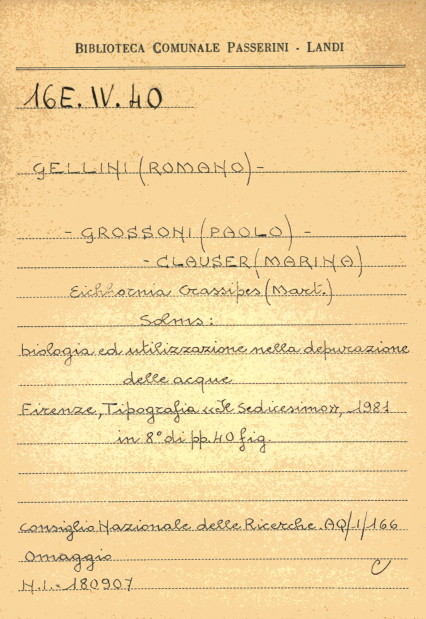 BIBLIOTECA COMUNALE PASSERINI - LANDI
16E. IV. 40
GELLINI (ROMANO) -
- GROSSONI (PAOLO) -
- CLAUSER (MARINA)
Eichhornia Crassipes (Mart.)
Solms:
biologia ed utilizzazione nella depurazione
delle acque
Firenze, Tipografia «Il Sedicesimo», 1981
in 8° di pp. 40 fig.
Consiglio Nazionale delle Ricerche. AQ/1/166
Omaggio
C
N.I. - 180907